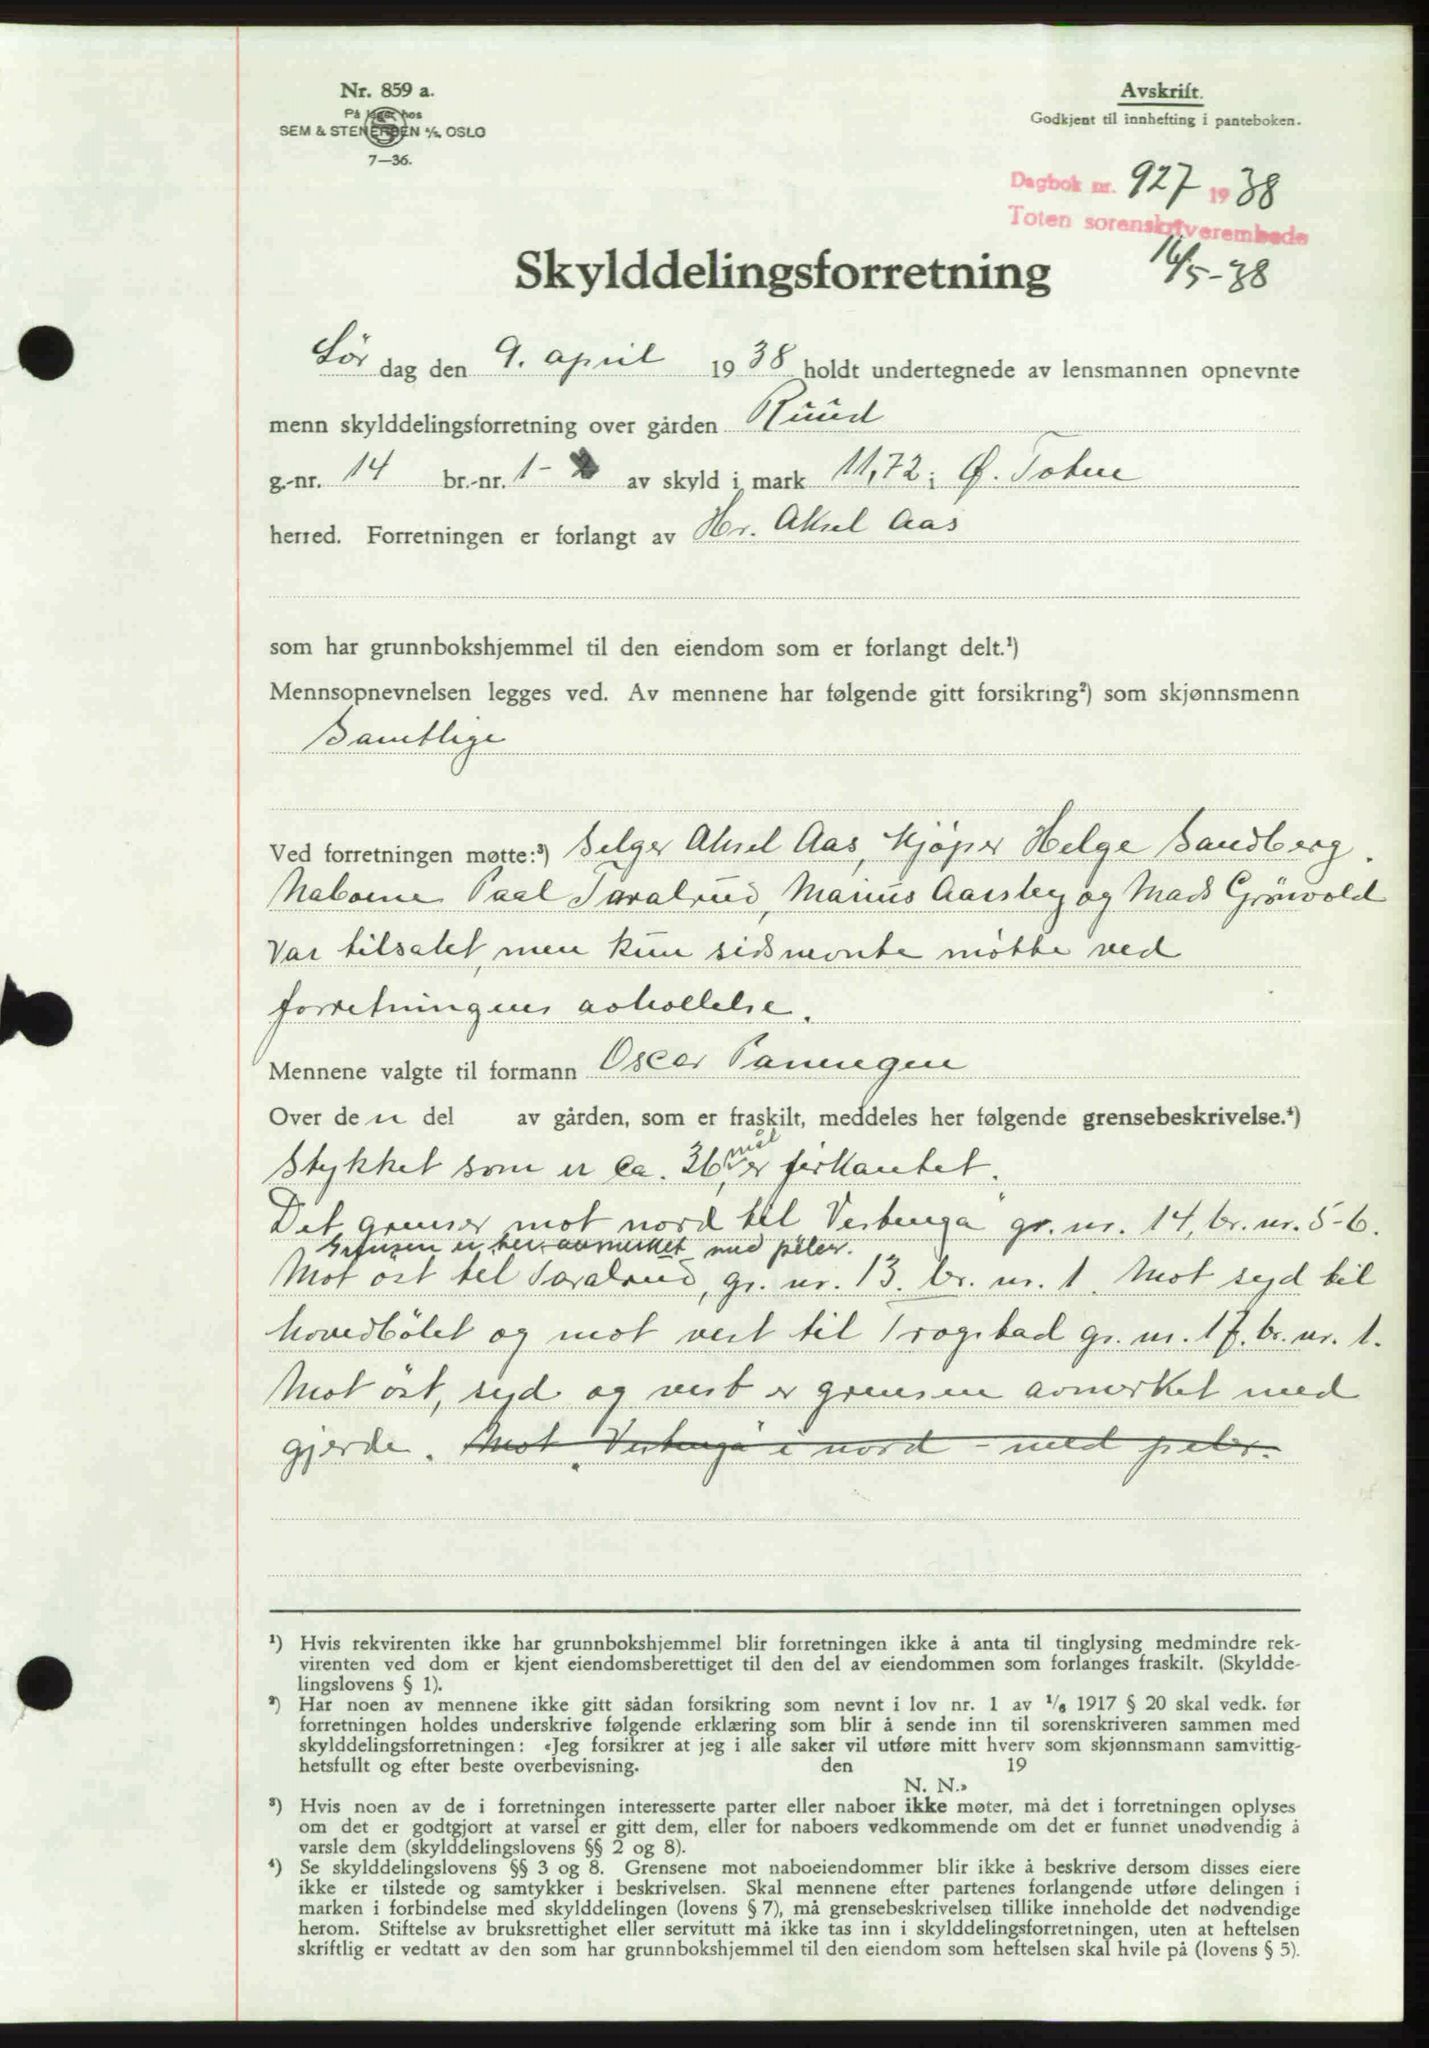 Nr. 859 a.
På lager hos
SEM & STENERSEN A/S, OSLO
7—36.
Avskrift.
Godkjent til innhefting i panteboken.
Dagbok nr. 927 1938
Toten sorenskriverembede
16/5-38
Skylddelingsforretning
Lör dag den 9. april 1938 holdt undertegnede av lensmannen opnevnte
menn skylddelingsforretning over gården Ruud
g.-nr. 14 br.-nr. 1- av skyld i mark 11,72 i Ø. Toten
herred. Forretningen er forlangt av Hr. Aksel Aas
som har grunnbokshjemmel til den eiendom som er forlangt delt.¹)
Mennsopnevnelsen legges ved. Av mennene har følgende gitt forsikring²) som skjønnsmenn
Samtlige
Ved forretningen møtte:³) Selger Aksel Aas, Kjøper Helge Sandberg.
Naboene Paal Taralrud, Marius Aarsby og Mads Grönvold
var tilsalet, men kun sidsnevnte møtte ved
forretningens avholdelse.
Mennene valgte til formann Oscar Panengen
Over den del av gården, som er fraskilt, meddeles her følgende grensebeskrivelse.⁴)
Stykket som er ca. 36 mål, er firkantet.
Det grenser mot nord til Vestenga" gr. nr. 14, br. nr. 5-6.
Grensen er her avmerket med peler.
Mot öst til Taralrud, gr. nr. 13. br. nr. 1. Mot syd til
hovedbölet og mot vest til Trogstad gr. nr. 17. br. nr. 1.
Mot öst, syd og vest er grensen avmerket med
gjerde. Mot „Vestenga" i nord - med peler.
¹) Hvis rekvirenten ikke har grunnbokshjemmel blir forretningen ikke å anta til tinglysing medmindre rek-
virenten ved dom er kjent eiendomsberettiget til den del av eiendommen som forlanges fraskilt. (Skyldde-
lingslovens § 1).
²) Har noen av mennene ikke gitt sådan forsikring som nevnt i lov nr. 1 av ¹/₆ 1917 § 20 skal vedk. før
forretningen holdes underskrive følgende erklæring som blir å sende inn til sorenskriveren sammen med
skylddelingsforretningen: «Jeg forsikrer at jeg i alle saker vil utføre mitt hverv som skjønnsmann samvittig-
hetsfullt og efter beste overbevisning. den 19
N. N.»
³) Hvis noen av de i forretningen interesserte parter eller naboer ikke møter, må det i forretningen oplyses
om det er godtgjort at varsel er gitt dem, eller for naboers vedkommende om det er funnet unødvendig å
varsle dem (skylddelingslovens §§ 2 og 8).
⁴) Se skylddelingslovens §§ 3 og 8. Grensene mot naboeiendommer blir ikke å beskrive dersom disses eiere
ikke er tilstede og samtykker i beskrivelsen. Skal mennene efter partenes forlangende utføre delingen i
marken i forbindelse med skylddelingen (lovens § 7), må grensebeskrivelsen tillike inneholde det nødvendige
herom. Stiftelse av bruksrettighet eller servitutt må ikke tas inn i skylddelingsforretningen, uten at heftelsen
skriftlig er vedtatt av den som har grunnbokshjemmel til den eiendom som heftelsen skal hvile på (lovens § 5).